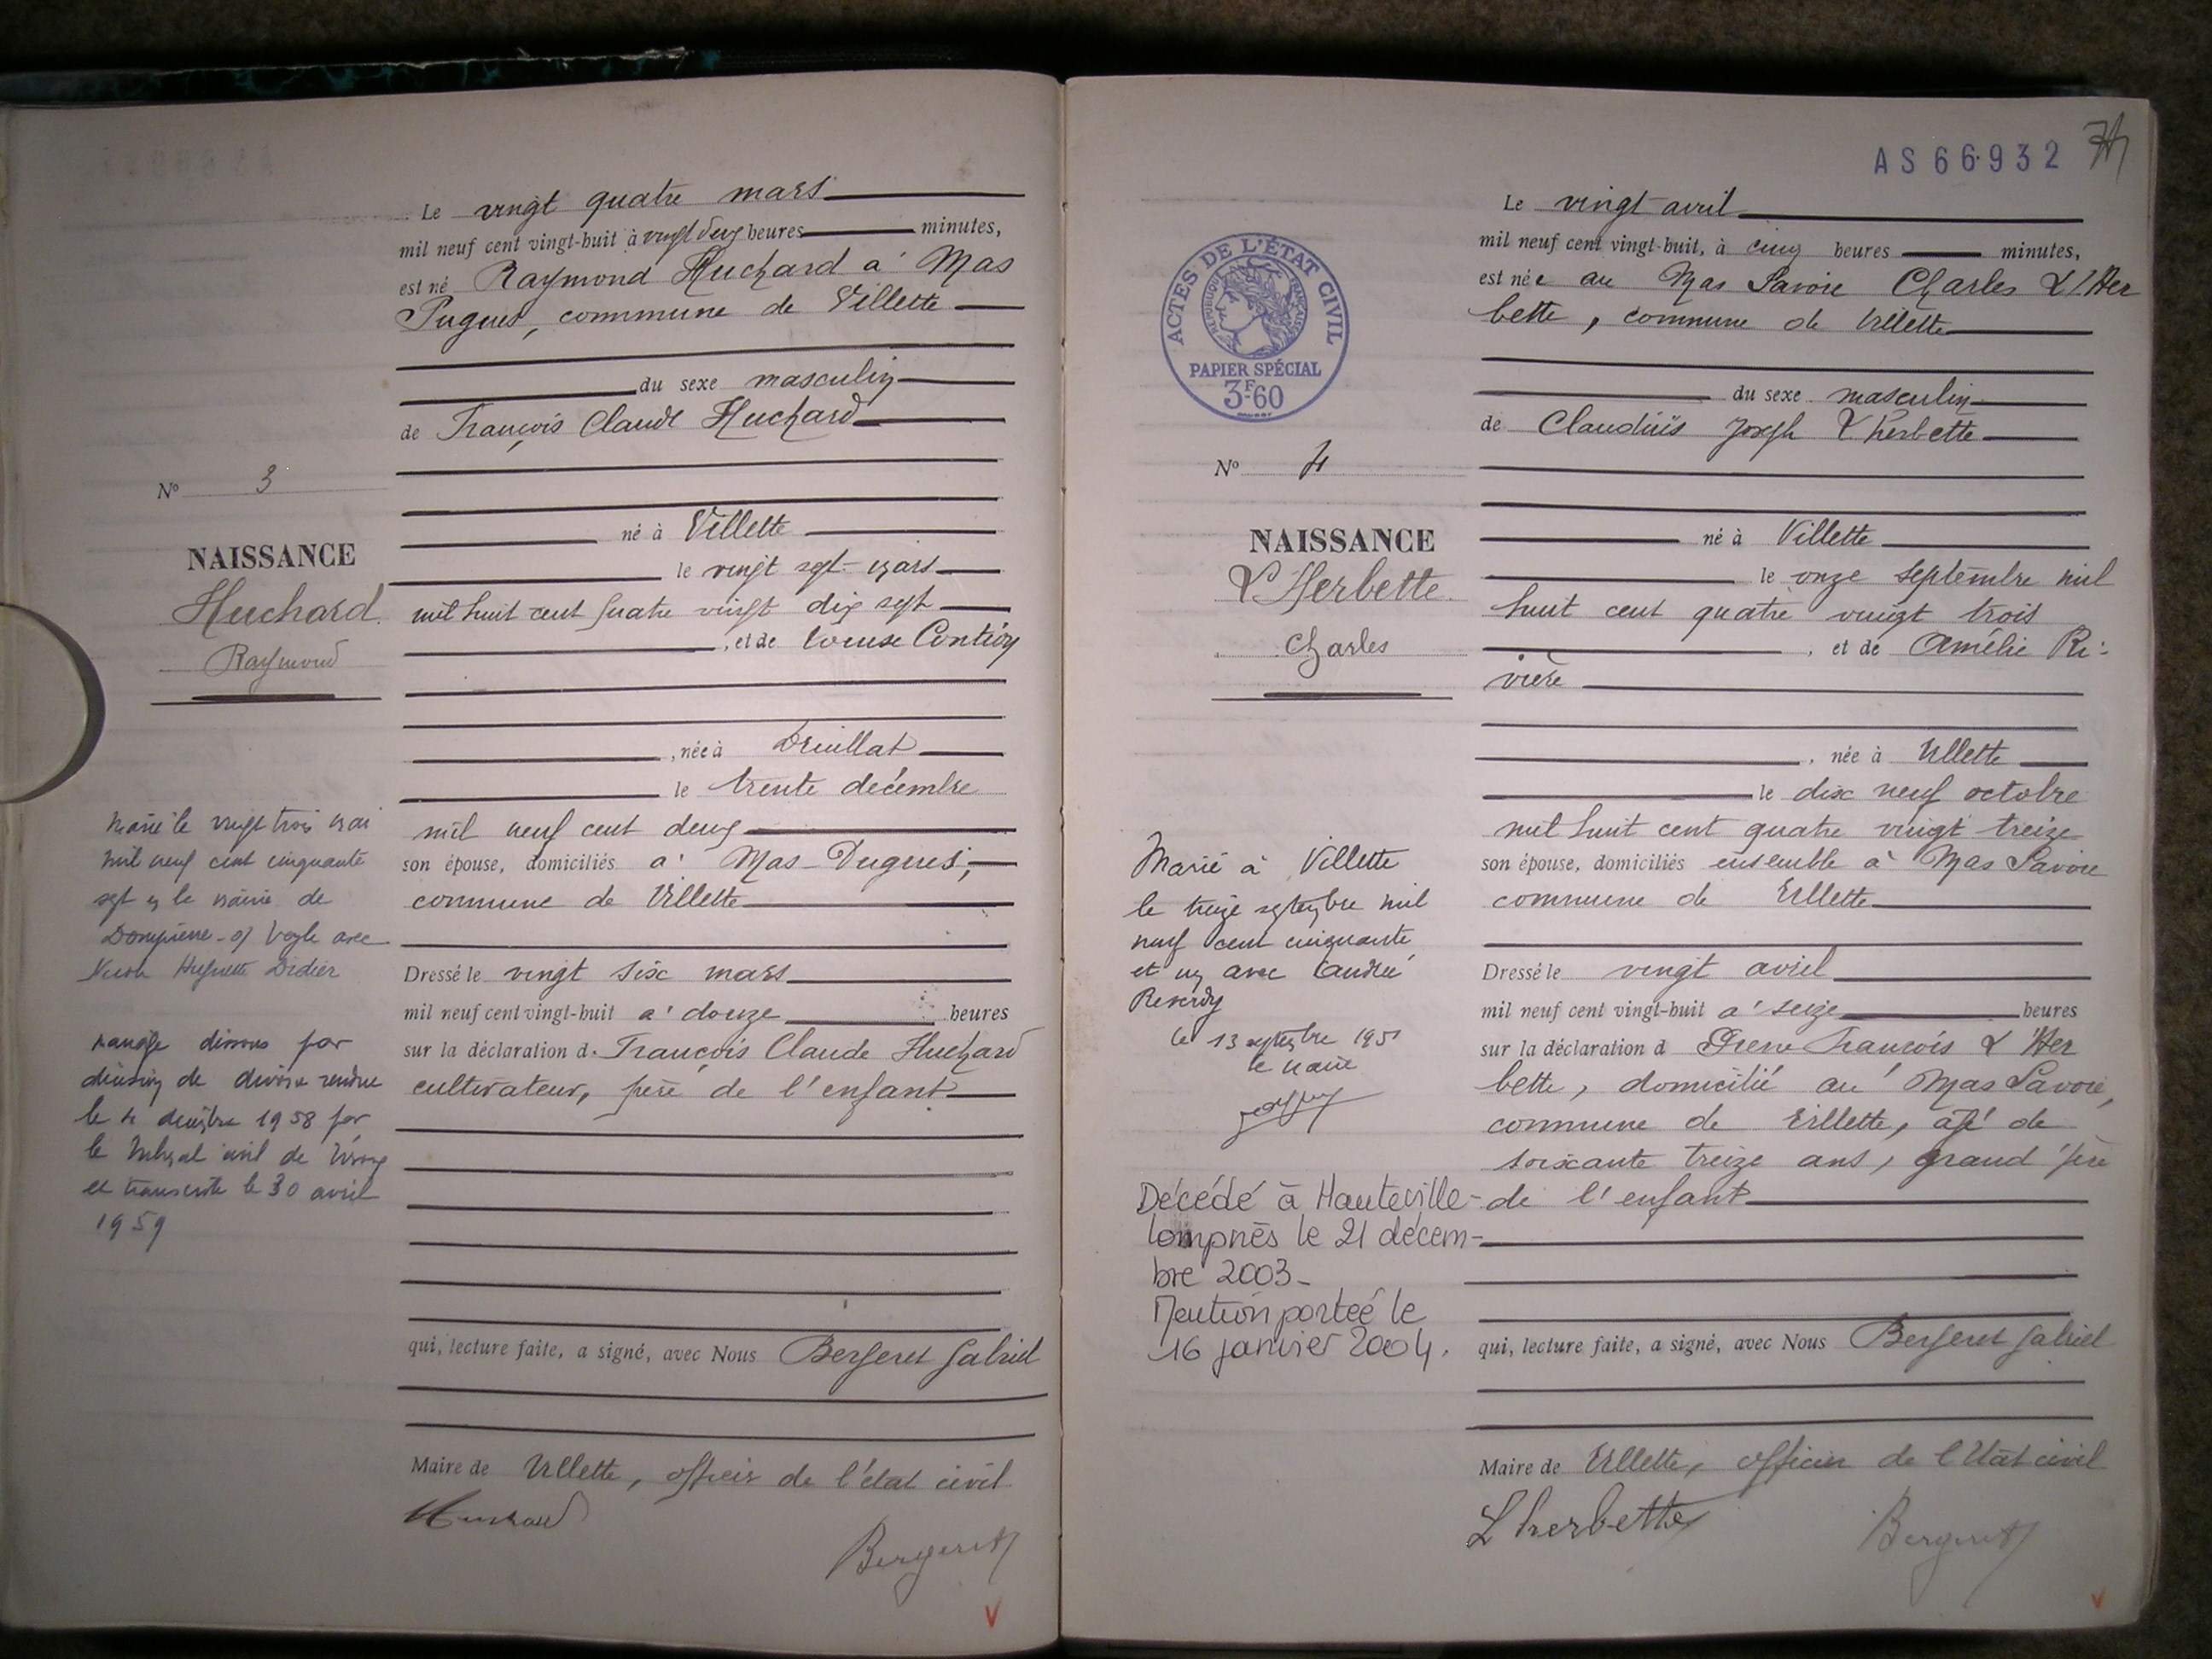 Le vingt quatre mars
mil neuf cent vingt-huit à vingt deux heures minutes,
est né Raymond Huchard à Mas
Pugues, commune de Villette
du sexe masculin
de François Claude Huchard
N° 3
né à Villette
NAISSANCE
le vingt sept mars
Huchard
mil huit cent quatre vingt dix sept
Raymond
, et de Louise Contion
, née à Druillat
le trente décembre
mil neuf cent deux
son épouse, domiciliés à Mas Pugues,
commune de Villette
Marié le vingt trois mai
mil neuf cent cinquante
sept en la mairie de
Dompierre-s/ Veyle avec
Huguette Didier
Dressé le vingt six mars
mil neuf cent vingt-huit à douze heures
sur la déclaration d. François Claude Huchard
cultivateur, père de l'enfant
mariage dissous par
décision de divorce rendue
le 4 décembre 1958 par
le tribunal civil de
et transcrite le 30 avril
1959
qui, lecture faite, a signé, avec Nous Bergeret Gabriel
Maire de Villette, officier de l'état civil
Huchard
Bergeret
V
AS 66932
Le vingt avril
mil neuf cent vingt-huit, à cinq heures minutes,
est née au Mas Savoie Charles L'Her
bette, commune de Villette
du sexe masculin
de Claudius Joseph L'herbette
ACTES DE L'ÉTAT CIVIL
RÉPUBLIQUE FRANÇAISE
PAPIER SPÉCIAL
3F.60
N° 4
né à Villette
NAISSANCE
le onze septembre mil
L'Herbette
huit cent quatre vingt trois
Charles
, et de Amélie Ri-
vière
, née à Villette
le dix neuf octobre
mil huit cent quatre vingt treize
son épouse, domiciliés ensemble à Mas Savoie
commune de Villette
Marié à Villette
le treize septembre mil
neuf cent cinquante
et un avec Andrée
le 13 septembre 1951
le maire
Dressé le vingt avril
mil neuf cent vingt-huit à seize heures
sur la déclaration d Pierre François L'Her
bette, domicilié au Mas Savoie,
commune de Villette, âgé de
soixante treize ans, grand père
de l'enfant
Décédé à Hauteville-
Lompnès le 21 décem-
bre 2003-
Mention portée le
16 janvier 2004.
qui, lecture faite, a signé, avec Nous Bergeret Gabriel
Maire de Villette, officier de l'Etat civil
Lherbette
Bergeret
V